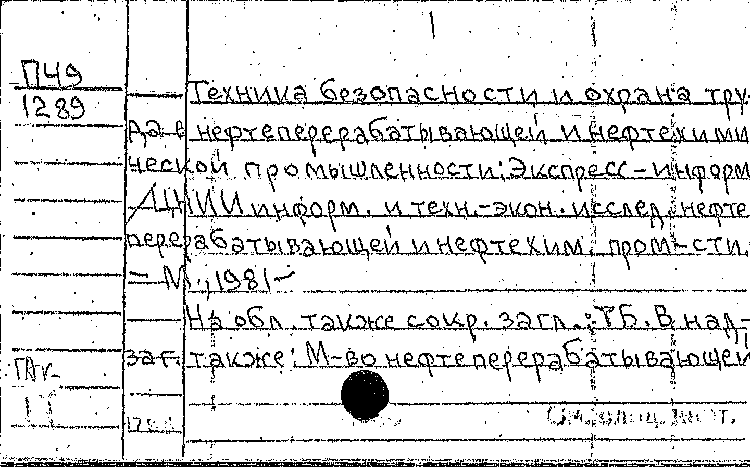 П49
1289
Техника безопасности и охрана тру-
да в нефтеперерабатывающей и нефтехими
ческой промышленности: Экспресс-информ
/ ЦНИИ информ. и техн.-экон. исслед. нефте
перерабатывающей и нефтехим. пром-сти.
— М., 1981—
На обл. также сокр. загл.: ТБ. В над-
заг. также: М-во нефтеперерабатывающей
См. след. лист.